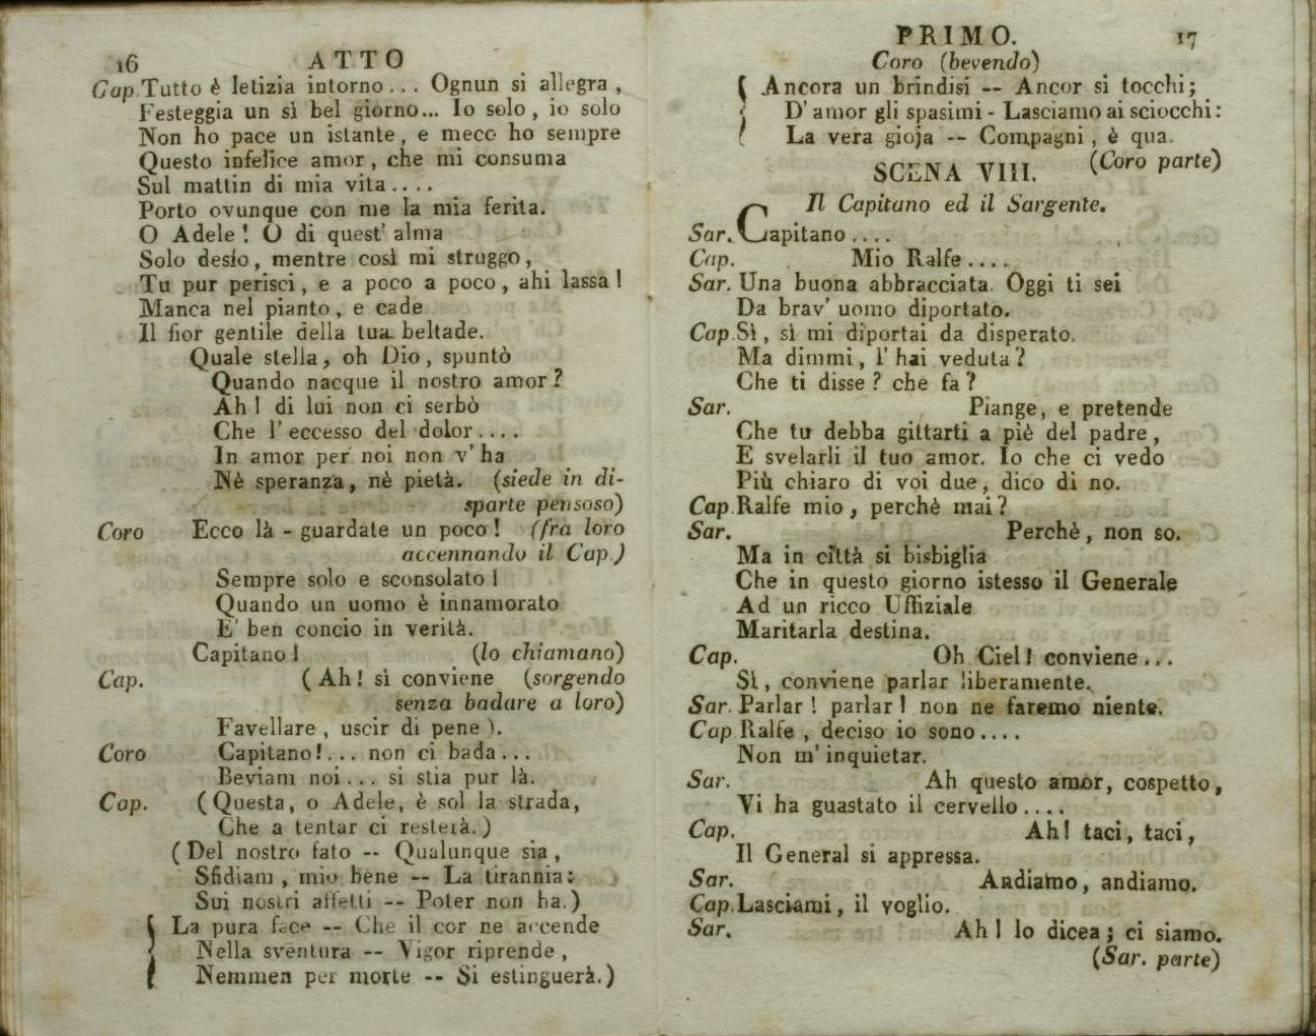 16 ATTO
Cap. Tutto è letizia intorno... Ognun si allegra,
Festeggia un sì bel giorno... Io solo, io solo
Non ho pace un istante, e meco ho sempre
Questo infelice amor, che mi consuma
Sul mattin di mia vita....
Porto ovunque con me la mia ferita.
O Adele! O di quest' alma
Solo desío, mentre così mi struggo,
Tu pur perisci, e a poco a poco, ahi lassa!
Manca nel pianto, e cade
Il fior gentile della tua beltade.
Quale stella, oh Dio, spuntò
Quando nacque il nostro amor?
Ah! di lui non ci serbò
Che l' eccesso del dolor....
In amor per noi non v' ha
Nè speranza, nè pietà. (siede in di-
sparte pensoso)
Coro Ecco là - guardate un poco! (fra loro
accennando il Cap.)
Sempre solo e sconsolato!
Quando un uomo è innamorato
E' ben concio in verità.
Capitano! (lo chiamano)
Cap. (Ah! sì conviene (sorgendo
senza badare a loro)
Favellare, uscir di pene).
Coro Capitano!... non ci bada...
Beviam noi... si stia pur là.
Cap. (Questa, o Adele, è sol la strada,
Che a tentar ci resterà.)
(Del nostro fato -- Qualunque sia,
Sfidiam, mio bene -- La tirannia:
Sui nostri affetti -- Poter non ha.)
La pura face -- Che il cor ne accende
Nella sventura -- Vigor riprende,
Nemmen per morte -- Si estinguerà.)
PRIMO. 17
Coro (bevendo)
Ancora un brindisi -- Ancor si tocchi;
D' amor gli spasimi - Lasciamo ai sciocchi:
La vera gioja -- Compagni, è qua.
(Coro parte)
SCENA VIII.
Il Capitano ed il Sargente.
Sar. Capitano....
Cap. Mio Ralfe....
Sar. Una buona abbracciata. Oggi ti sei
Da brav' uomo diportato.
Cap. Sì, sì mi diportai da disperato.
Ma dimmi, l' hai veduta?
Che ti disse? che fa?
Sar. Piange, e pretende
Che tu debba gittarti a piè del padre,
E svelarli il tuo amor. Io che ci vedo
Più chiaro di voi due, dico di no.
Cap. Ralfe mio, perchè mai?
Sar. Perchè, non so.
Ma in città si bisbiglia
Che in questo giorno istesso il Generale
Ad un ricco Uffiziale
Maritarla destina.
Cap. Oh Ciel! conviene...
Sì, conviene parlar liberamente.
Sar. Parlar! parlar! non ne faremo niente.
Cap Ralfe, deciso io sono....
Non m' inquietar.
Sar. Ah questo amor, cospetto,
Vi ha guastato il cervello....
Cap. Ah! taci, taci,
Il General si appressa.
Sar. Andiamo, andiamo.
Cap. Lasciami, il voglio.
Sar. Ah! lo dicea; ci siamo.
(Sar. parte)